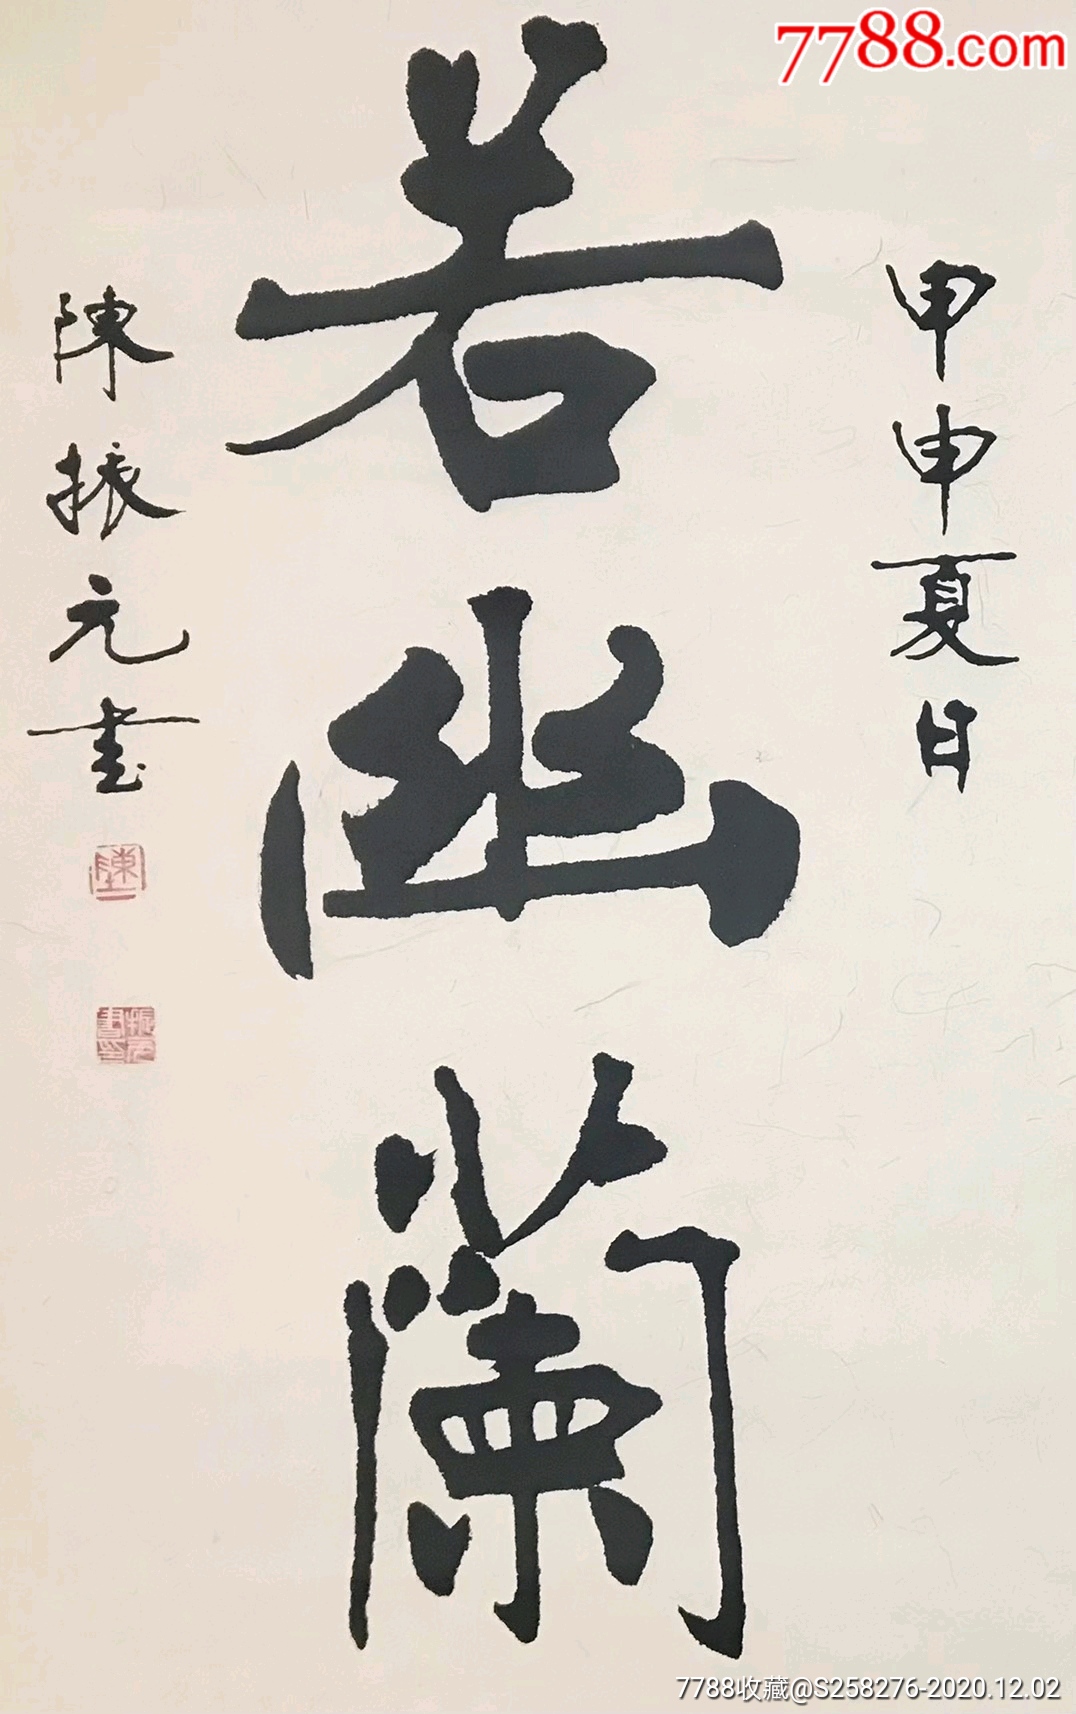 7788.com
甲申夏日
若幽蘭
陳振元書
陳
振元書印
7788收藏@S258276-2020.12.02